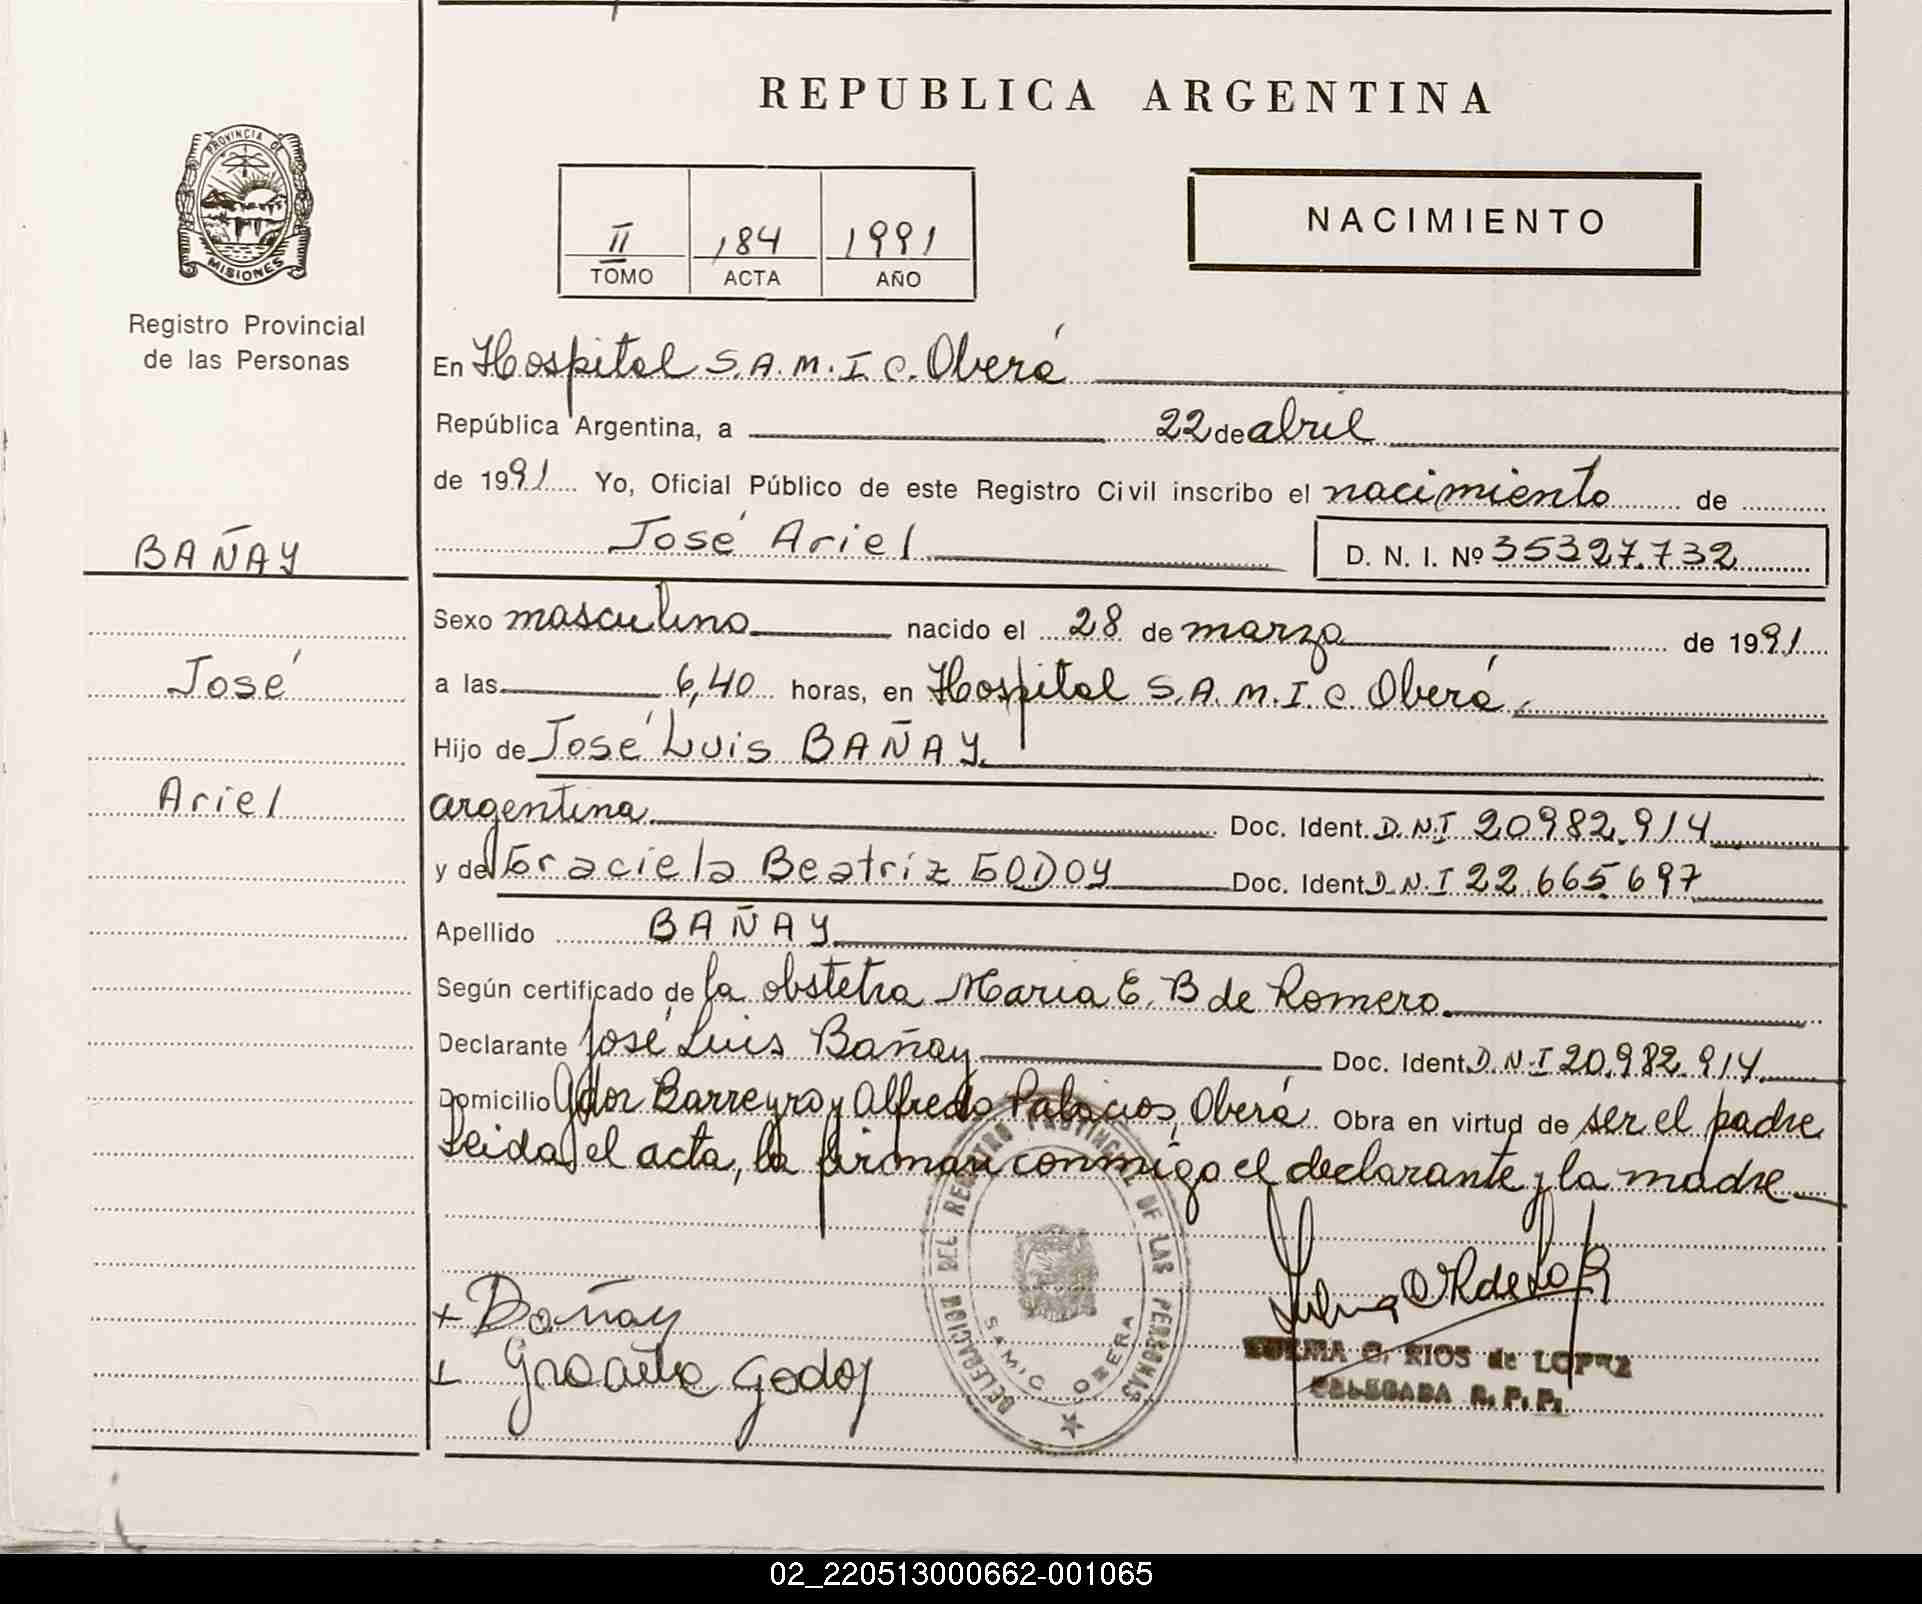 REPUBLICA ARGENTINA
PROVINCIA DE
MISIONES
Registro Provincial
de las Personas
II 184 1991
TOMO ACTA AÑO
NACIMIENTO
En Hospital S.A.M.I.C. Oberá
República Argentina, a 22 de abril
de 1991 Yo, Oficial Público de este Registro Civil inscribo el nacimiento de
José Ariel D. N. I. Nº 35327.732
BAÑAY
José
Ariel
Sexo masculino nacido el 28 de marzo de 1991
a las 6,40 horas, en Hospital S.A.M.I.C. Oberá
Hijo de José Luis BAÑAY
argentina Doc. Ident. D.N.I 20.982.914
y de Graciela Beatriz GODOY Doc. Ident. D.N.I 22.665.697
Apellido BAÑAY
Según certificado de la obstetra Maria E. B de Romero
Declarante José Luis Bañay Doc. Ident. D.N.I 20.982.914
Domicilio Gdor Barreyro y Alfredo Palacios, Oberá Obra en virtud de ser el padre
Leida el acta, la firman conmigo el declarante y la madre
+ Bañay
+ Graciela Godoy
DELEGACION DEL REGISTRO PROVINCIAL DE LAS PERSONAS
SAMIC OBERA
RIOS de LOPEZ
DELEGADA R. P. P.
02_220513000662-001065